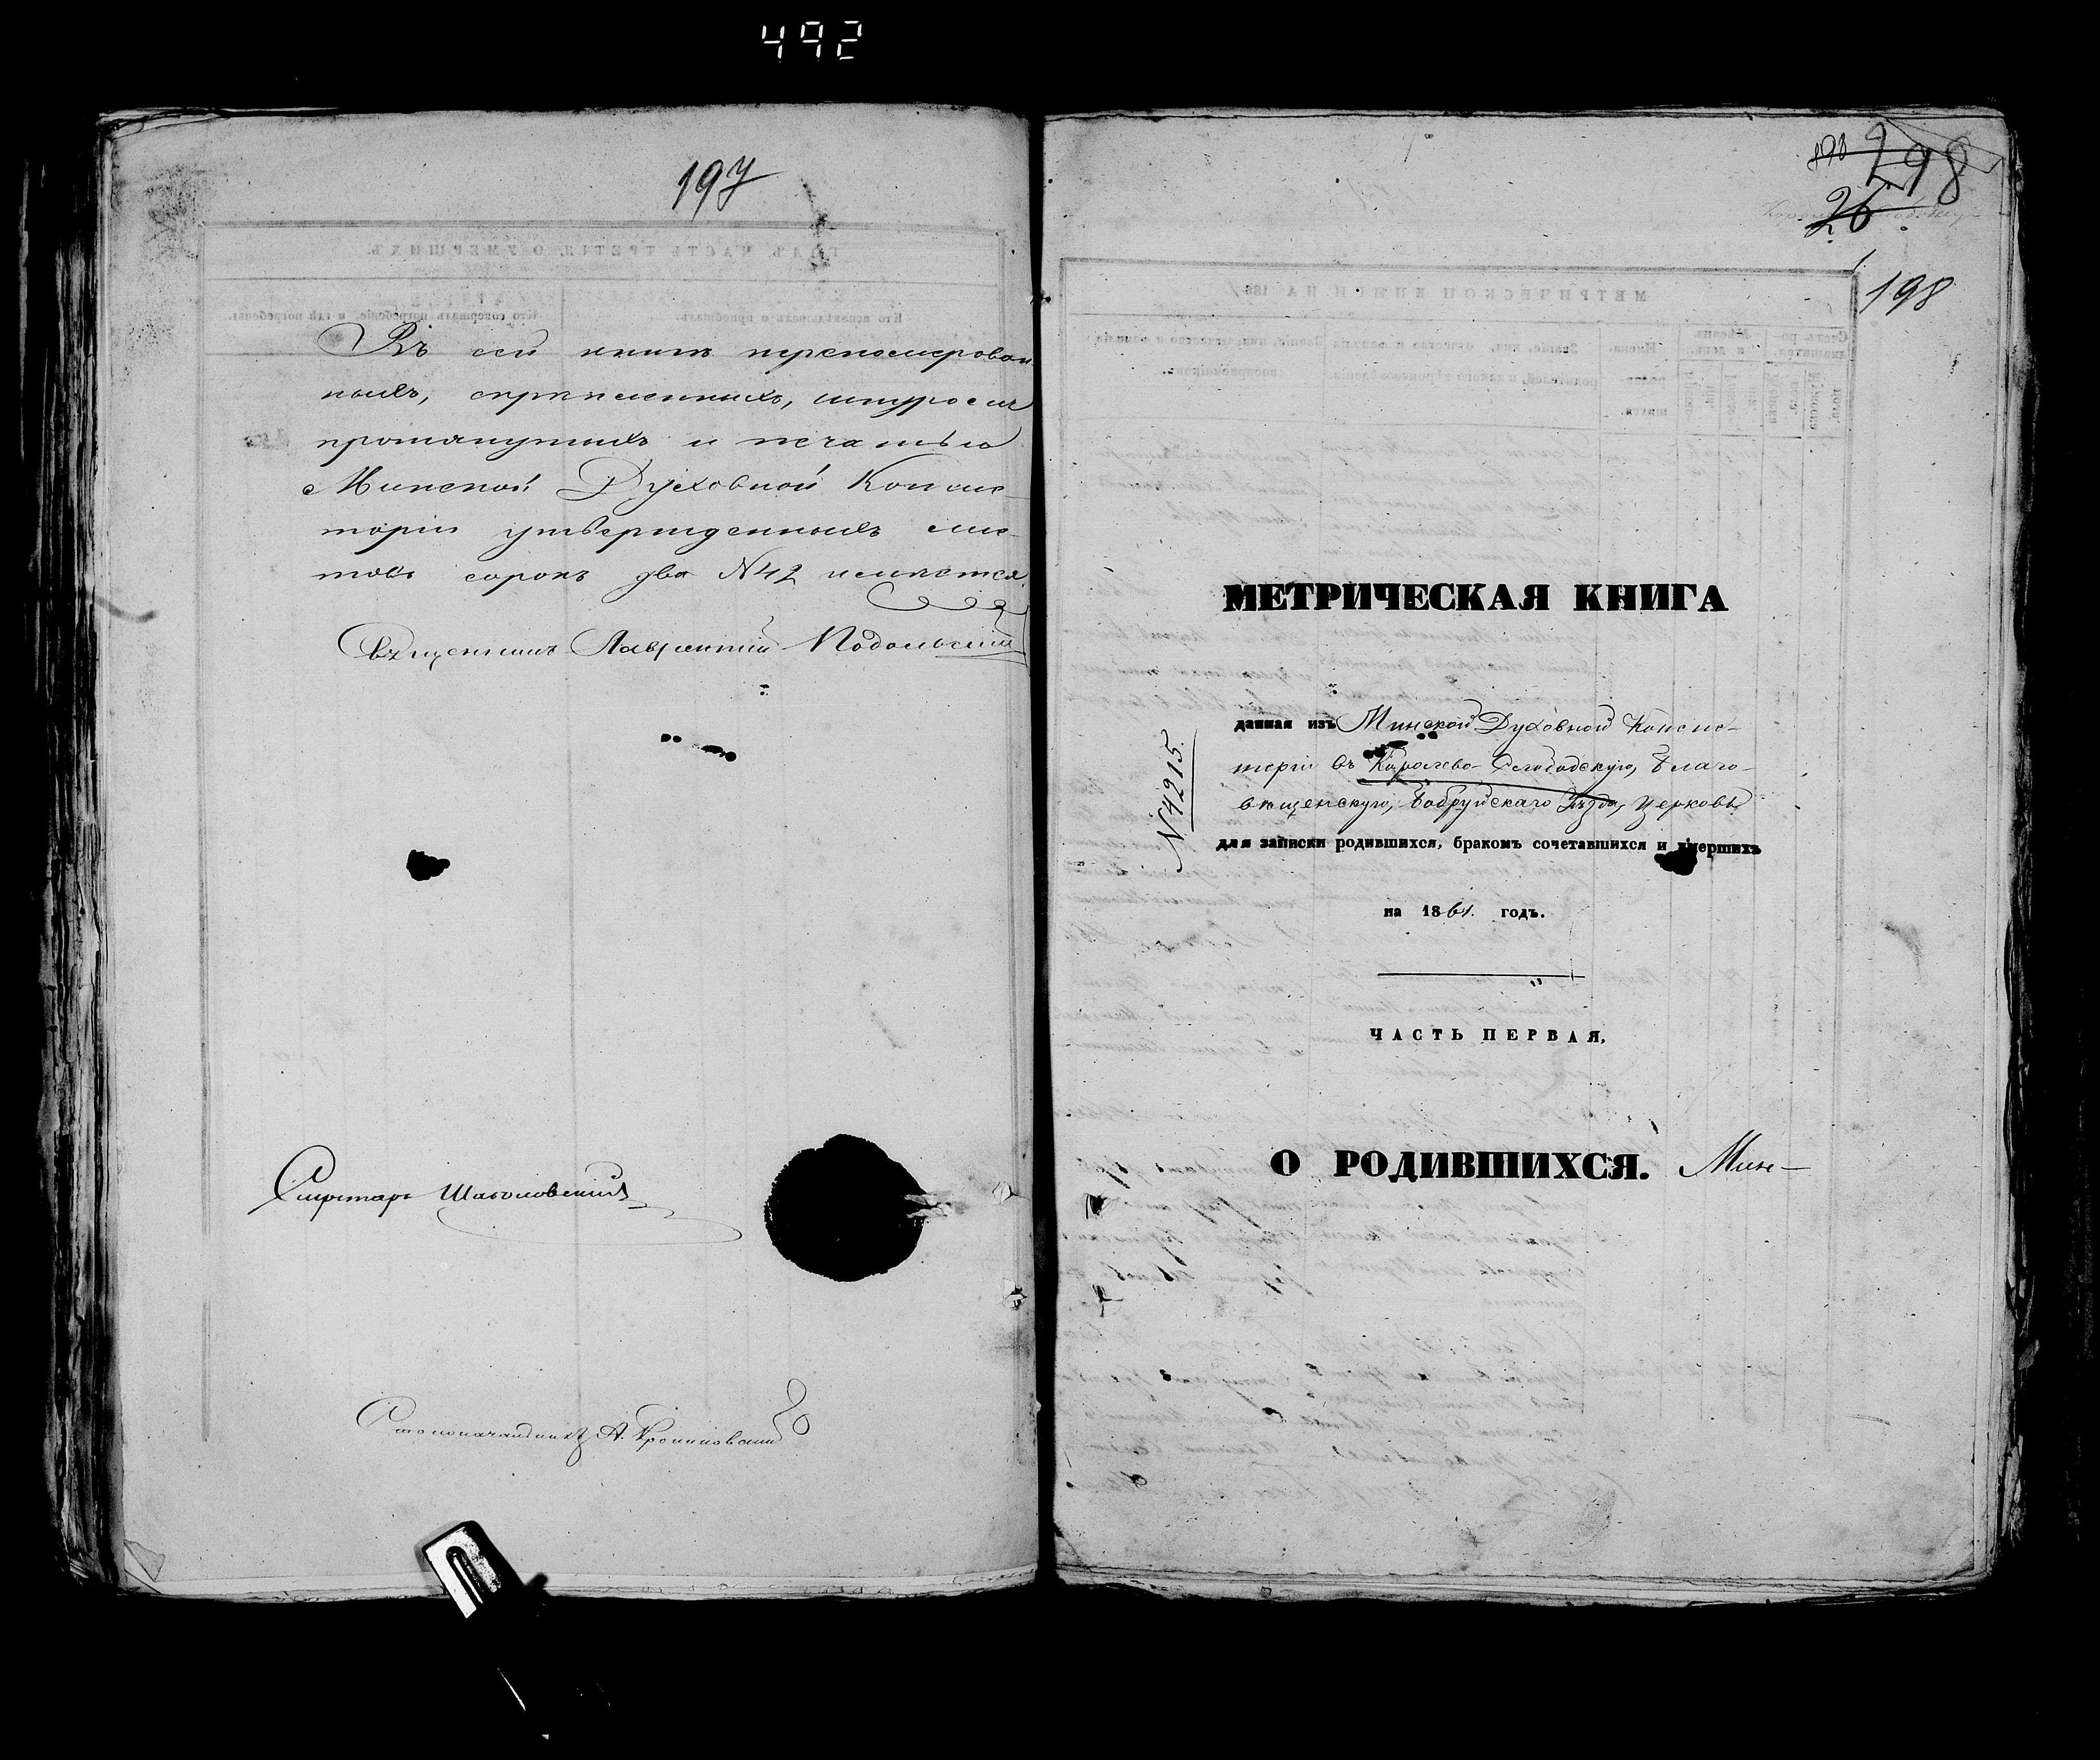 492
197
Въ сей книгѣ перенумерован-
ныхъ, скрѣпленныхъ, шнуромъ
протянутыхъ и печатью
Минской Духовной Консис-
торіи утвержденныхъ лис-
товъ сорокъ два №42 имѣется
Священникъ Лаврентій Подольскій
Секретарь
Столоначальникъ А.
298
26
198
МЕТРИЧЕСКАЯ КНИГА
данная изъ Минской Духовной Консис-
торіи въ Королево-Слободскую, Благо-
вѣщенскую, Бобруйскаго Уѣзда, церковь
№4215.
для записки родившихся, бракомъ сочетавшихся и умершихъ
на 1861. годъ.
ЧАСТЬ ПЕРВАЯ,
О РОДИВШИХСЯ. Мин-